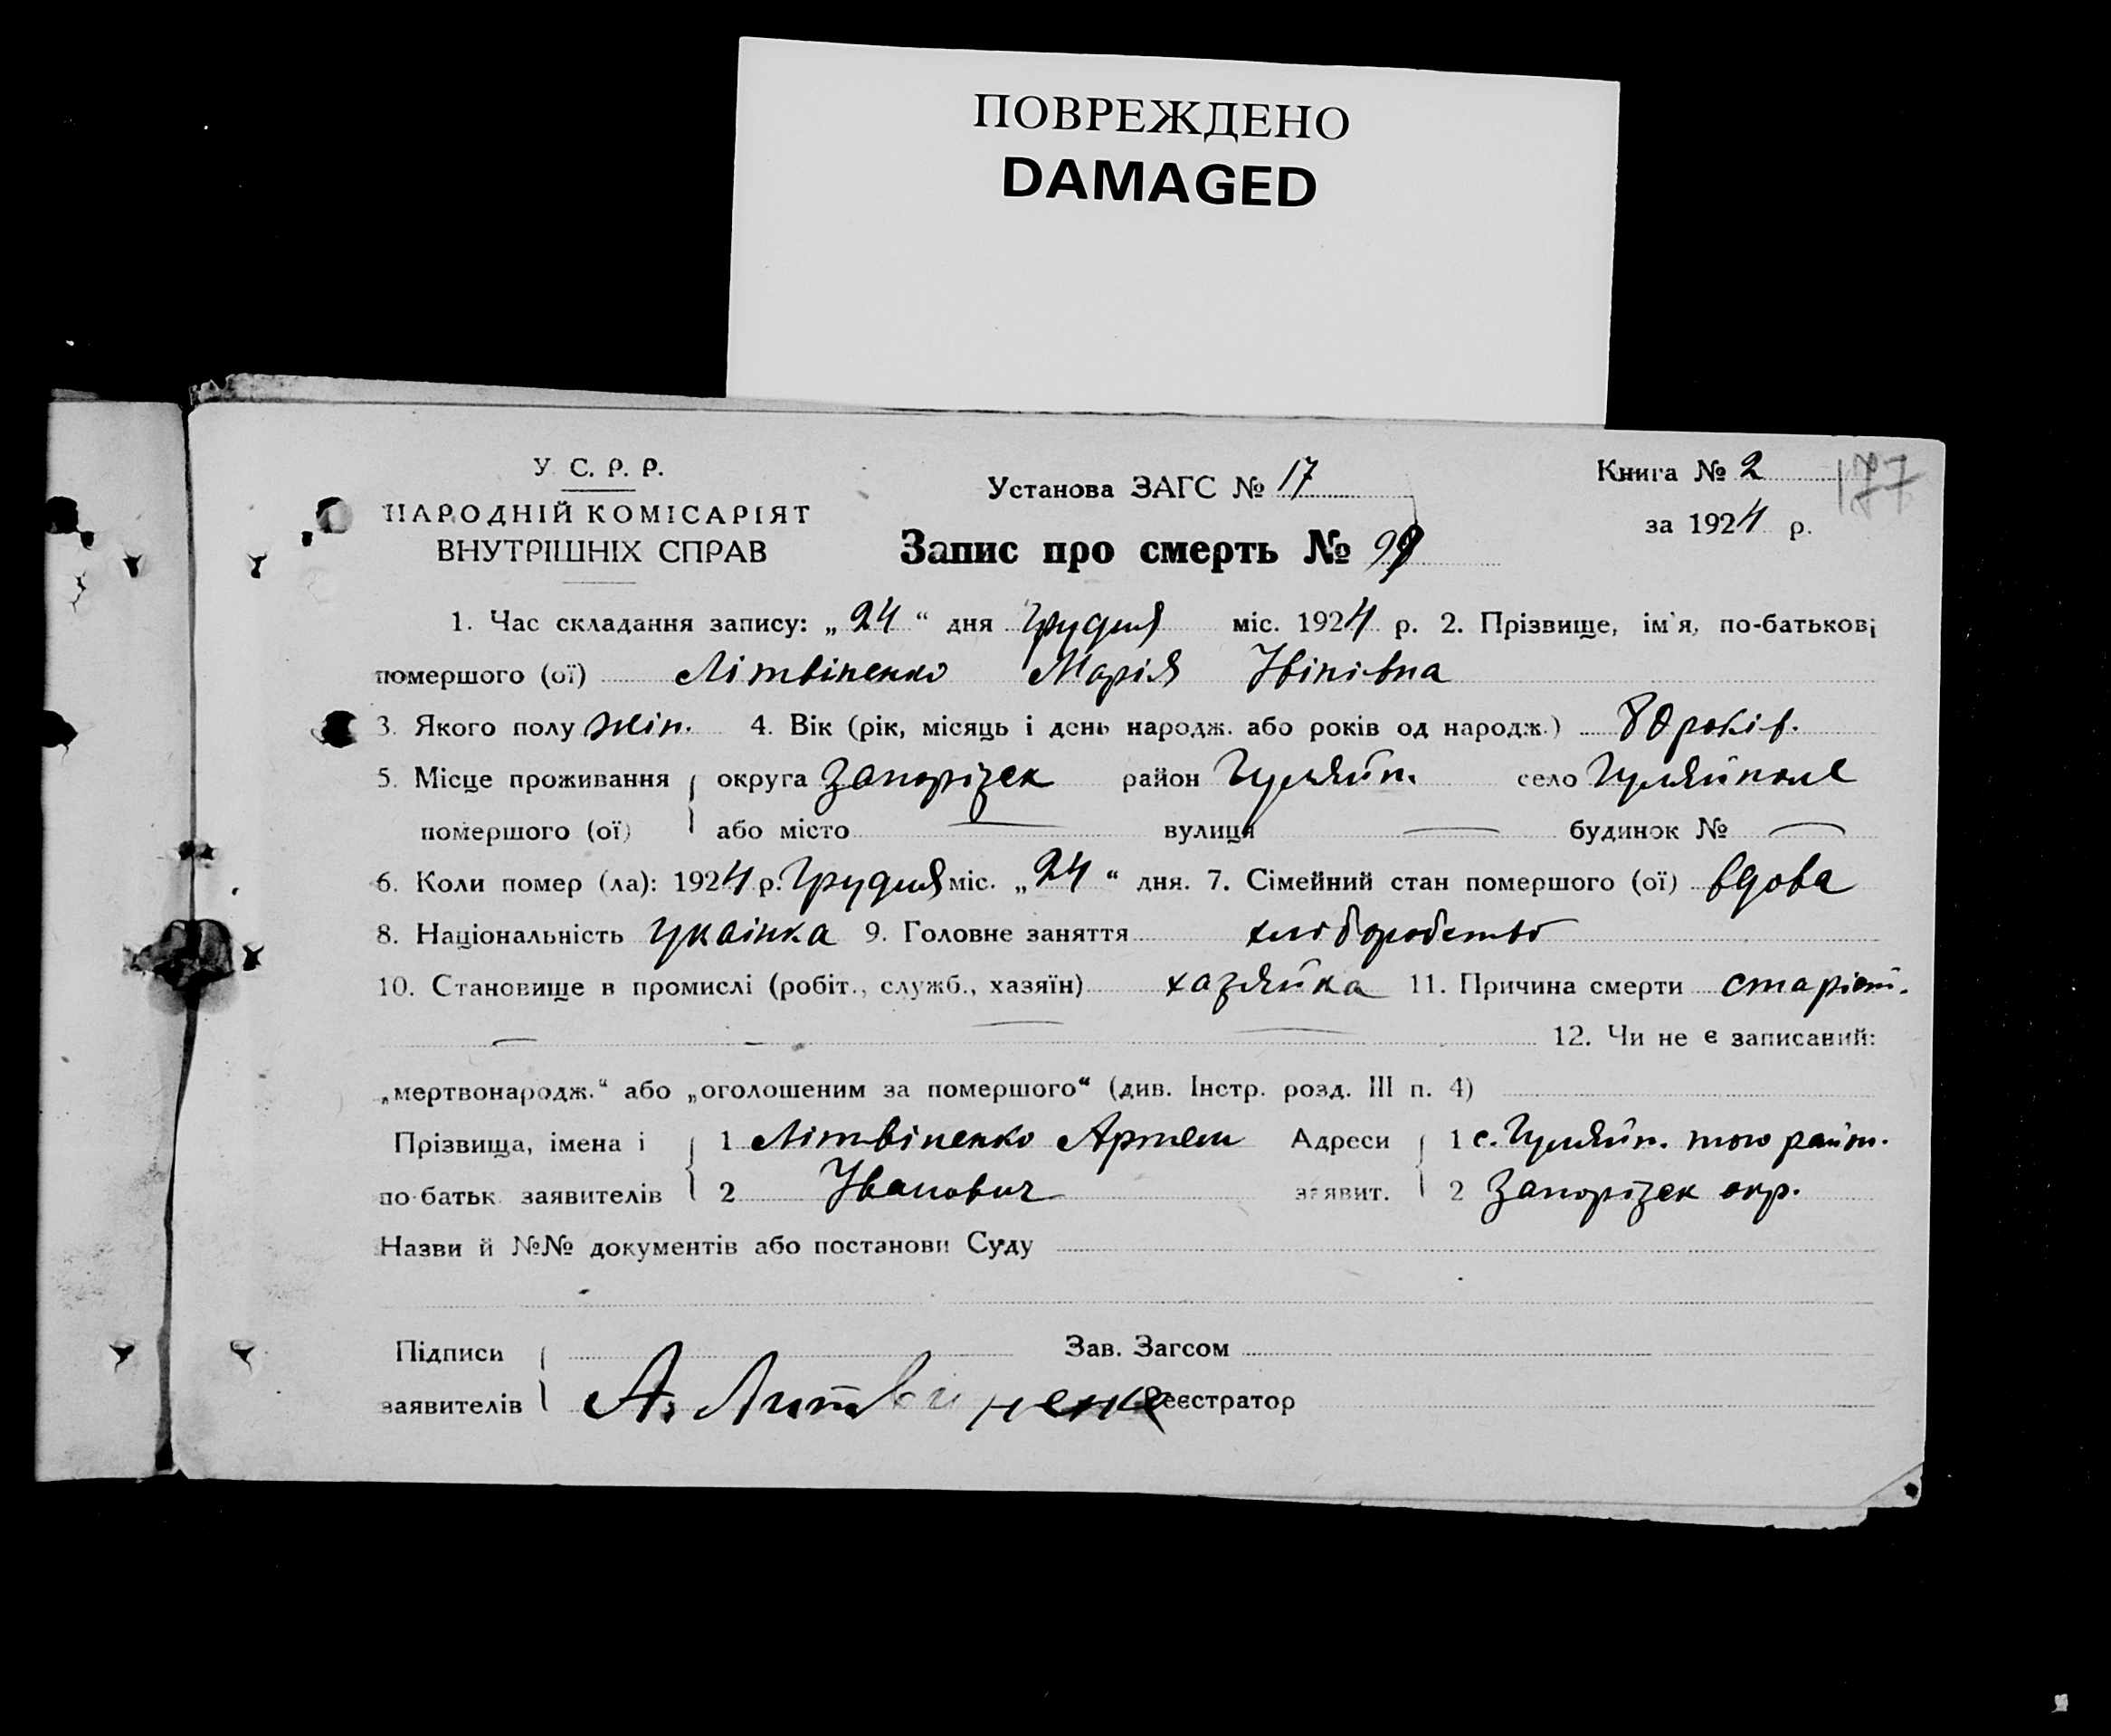 ПОВРЕЖДЕНО
DAMAGED
У. С. Р. Р.
НАРОДНІЙ КОМІСАРІЯТ
ВНУТРІШНІХ СПРАВ
Установа ЗАГС № 17
Запис про смерть №
Книга № 2 177
за 1924 р.
1. Час складання запису: „ 24 “ дня Грудня міс. 1924 р. 2. Прізвище, ім'я, по-батькові
помершого (ої) Літвіненко Марія Івінівна
3. Якого полу жін. 4. Вік (рік, місяць і день народж. або років од народж.) 80 років.
5. Місце проживання округа Запорізьк район Гуляйп. село Гуляйполе
помершого (ої) або місто — вулиця — будинок № —
6. Коли помер (ла): 1924 р. Грудня міс. „ 24 “ дня. 7. Сімейний стан помершого (ої) вдова
8. Національність Украінка 9. Головне заняття хліборобство
10. Становище в промислі (робіт., служб., хазяїн) хазяйка 11. Причина смерти старість.
12. Чи не є записаний:
„мертвонародж.“ або „оголошеним за помершого“ (див. Інстр. розд. III п. 4)
Прізвища, імена і 1 Літвіненко Артем Адреси 1 с. Гуляйп. того район.
по-батьк. заявителів 2 Іванович заявит. 2 Запорізьк окр.
Назви й №№ документів або постанови Суду
Підписи Зав. Загсом
заявителів А. Литвиненко Реєстратор